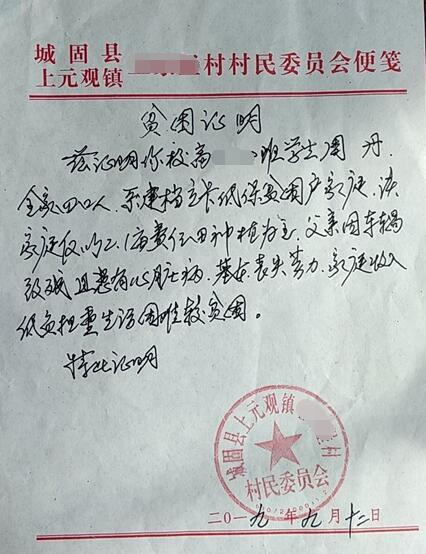 城固县
上元观镇 村村民委员会便笺
贫困证明
兹证明你校高 班学生周丹,
全家四口人,系建档立卡低保贫困户家庭,该
家庭仅以 责任田种植为主,父亲因车祸
致残且患有心脏病,基本丧失劳力,家庭收入
低负担重生活困难较贫困。
特此证明
城固县上元观镇 村
村民委员会
二〇一九年九月十二日